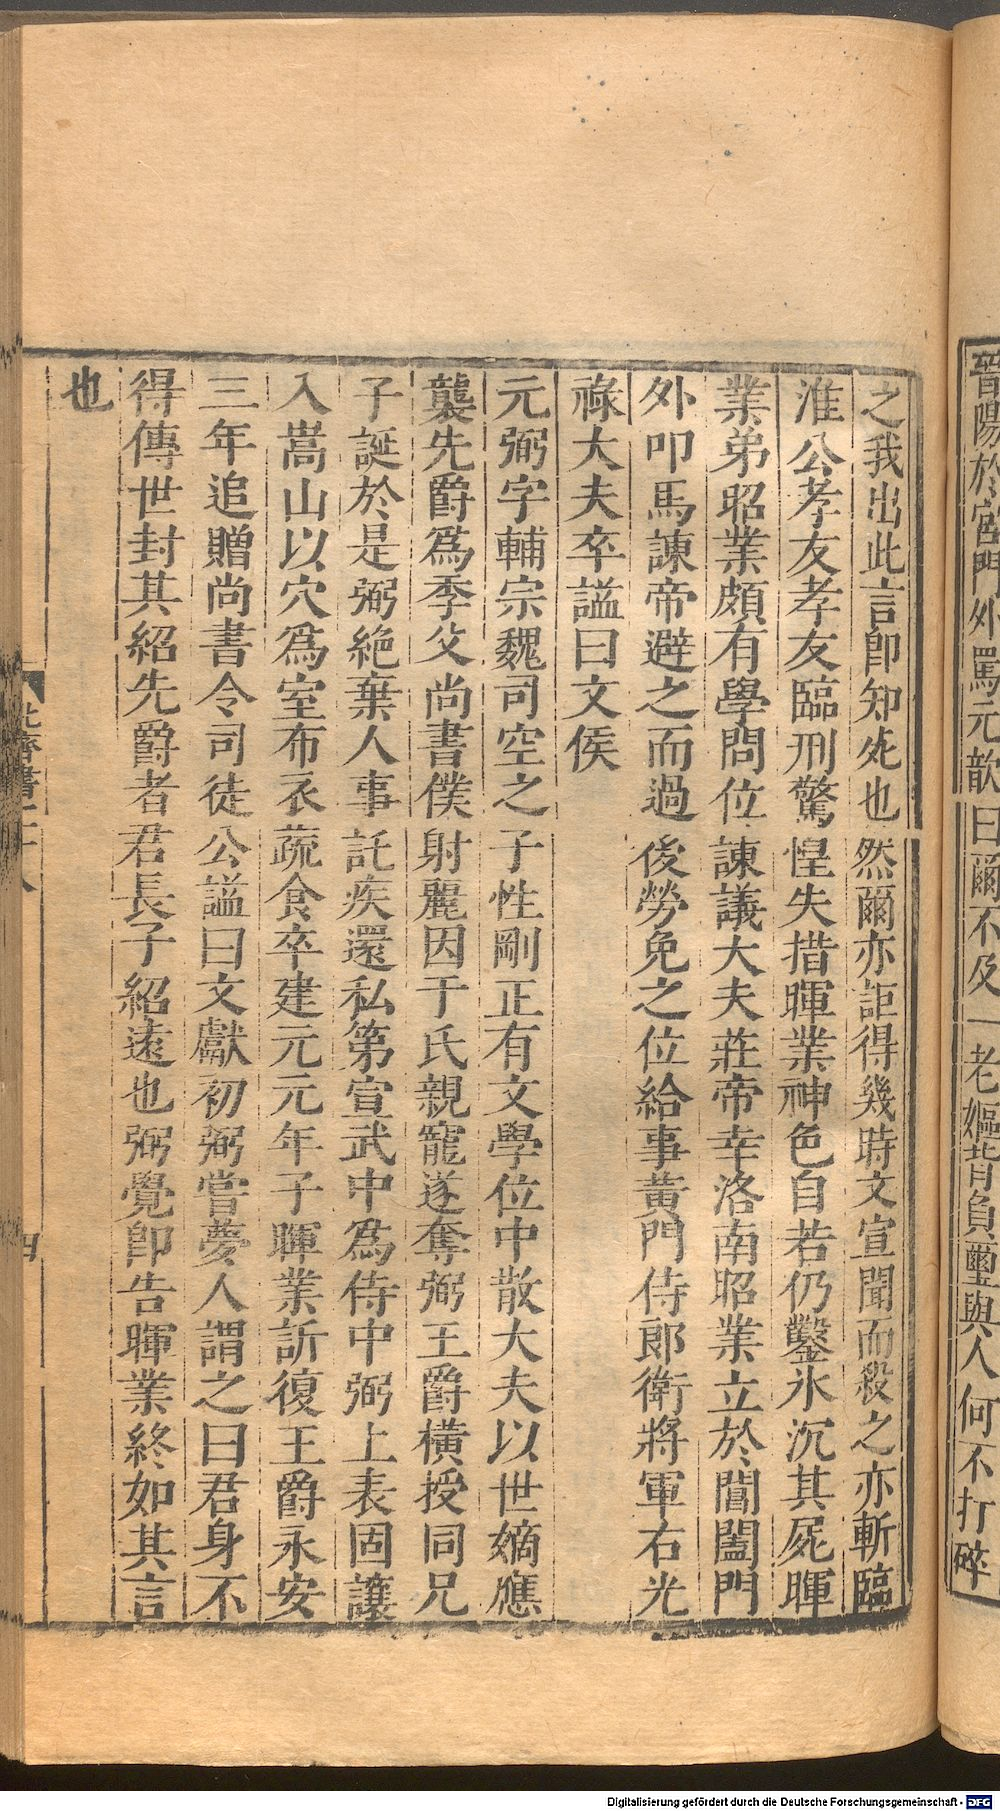 晉陽於宮門外罵元韶曰爾不及一老嫗背負璽與人何不打碎
之我出此言卽知死也然爾亦詎得幾時文宣聞而殺之亦斬臨
淮公孝友孝友臨刑驚惶失措暉業神色自若仍鑿氷沉其屍暉
業弟昭業頗有學問位諫議大夫莊帝幸洛南昭業立於閶闔門
外叩馬諫帝避之而過後勞免之位給事黃門侍郎衛將軍右光
祿大夫卒謚曰文侯
元弼字輔宗魏司空之子性剛正有文學位中散大夫以世嫡應
襲先爵爲季父尚書僕射麗因于氏親寵遂奪弼王爵橫授同兄
子誕於是弼絶棄人事託疾還私第宣武中爲侍中弼上表固讓
入嵩山以穴爲室布衣蔬食卒建元元年子暉業訢復王爵永安
三年追贈尚書令司徒公謚曰文獻初弼嘗夢人謂之曰君身不
得傳世封其紹先爵者君長子紹遠也弼覺卽告暉業終如其言
也
北齊書二十八
四
Digitalisierung gefördert durch die Deutsche Forschungsgemeinschaft - DFG